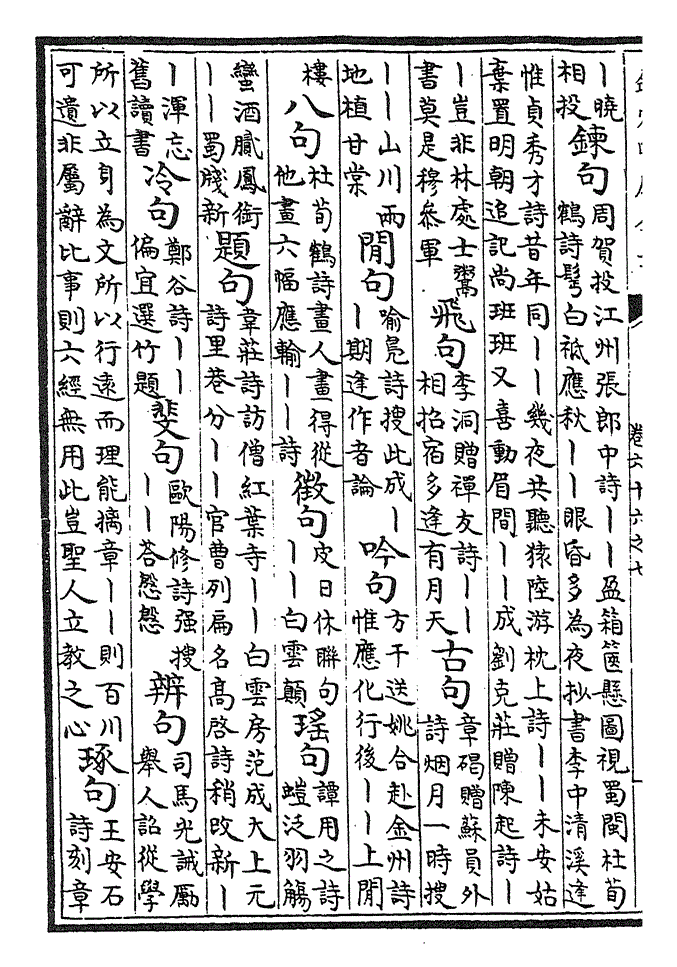 卷六十六之七
丨曉
相投
鍊句
周賀投江州張郎中詩丨丨盈箱篋懸圖視蜀閩杜荀
鶴詩髩白袛應秋丨丨眼昏多為夜抄書李中清溪逢
惟貞秀才詩昔年同丨丨幾夜共聽猿陸游枕上詩丨丨未安姑
棄置明朝追記尚班班又喜動眉間丨丨成劉克莊贈陳起詩丨
丨豈非林處士鬻
書莫是穆參軍
飛句
李洞贈禪友詩丨丨
相招宿多逢有月天
古句
章碣贈蘇員外
詩烟月一時搜
丨丨山川雨
地植甘棠
閒句
喻鳧詩搜此成丨
丨期逢作者論
吟句
方干送姚合赴金州詩
惟應化行後丨丨上閒
樓
八句
杜荀鶴詩畫人畫得從
他畫六幅應輸丨丨詩
徵句
皮日休聯句
丨丨白雲顛
瑤句
譚用之詩
螘泛羽觴
蠻酒膩鳳銜
丨丨蜀牋新
題句
韋莊詩訪僧紅葉寺丨丨白雲房范成大上元
詩里巷分丨丨官曹列扁名高啓詩稍改新丨
丨渾忘
舊讀書
冷句
鄭谷詩丨丨
偏宜選竹題
斐句
歐陽修詩强搜
丨丨荅慇
辨句
司馬光誡勵
舉人詔從學
所以立身為文所以行遠而理能摛章丨丨則百川
可遺非屬辭比事則六經無用此豈聖人立教之心
琢句
王安石
詩刻章